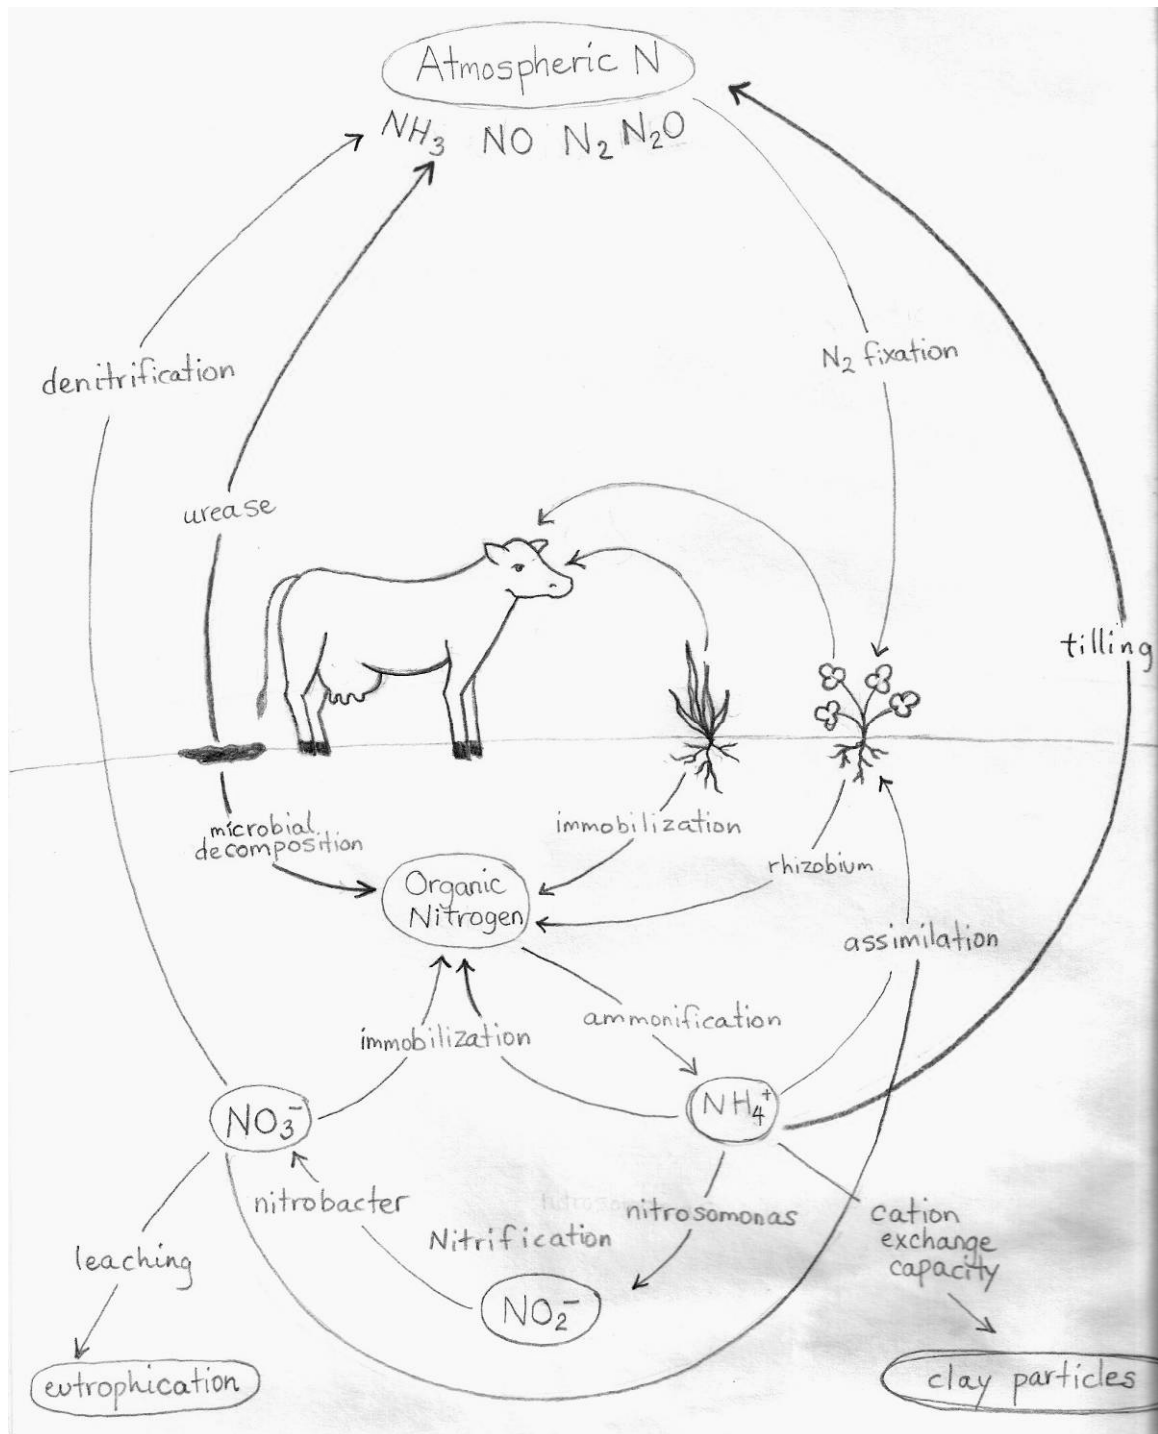 Atmospheric N
NH₃ NO N₂ N₂O
denitrification
N₂ fixation
urease
tilling
microbial
decomposition
immobilization
rhizobium
Organic
Nitrogen
assimilation
ammonification
immobilization
NO₃⁻
NH₄⁺
nitrobacter
nitrosomonas
cation
exchange
capacity
Nitrification
leaching
NO₂⁻
eutrophication
clay particles